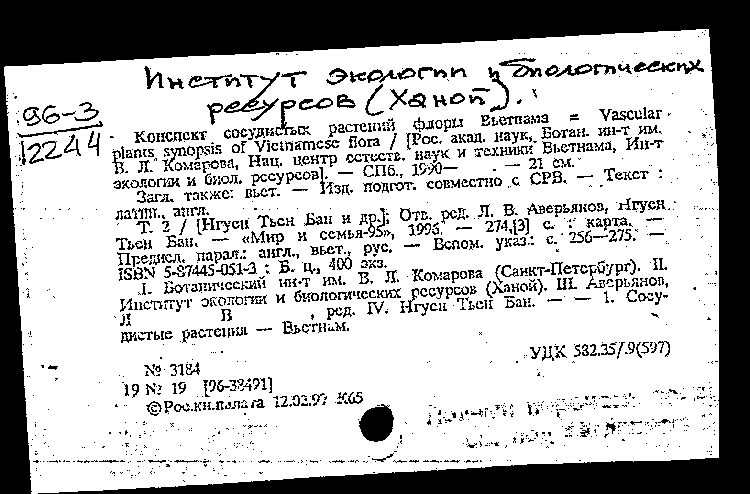 Институт экологии и биологических
ресурсов (Ханой).
96-3
12244
Конспект сосудистых растений флоры Вьетнама = Vascular
plants synopsis of Vietnamese flora / [Рос. акад. наук, Ботан. ин-т им.
В. Л. Комарова, Нац. центр естеств. наук и техники Вьетнама, Ин-т
экологии и биол. ресурсов]. — СПб., 1990— . — 21 см.
Загл. также: вьет. — Изд. подгот. совместно с СРВ. — Текст :
латин., англ.
Т. 2 / [Нгуен Тьен Бан и др.]; Отв. ред. Л. В. Аверьянов, Нгуен
Тьен Бан. — «Мир и семья-95», 1996. — 274,[3] с. : карта. —
Предисл. парал.: англ., вьет., рус. — Вспом. указ.: с. 256—275. —
ISBN 5-87445-051-3 : Б. ц., 400 экз.
I. Ботанический ин-т им. В. Л. Комарова (Санкт-Петербург). II.
Институт экологии и биологических ресурсов (Ханой). III. Аверьянов,
Л В , ред. IV. Нгуен Тьен Бан. — — 1. Сосу-
дистые растения — Вьетнам.
УДК 582.35/.9(597)
№ 3184
19 № 19 [96-38491]
© Рос.кн.палата 12.02.97 К65